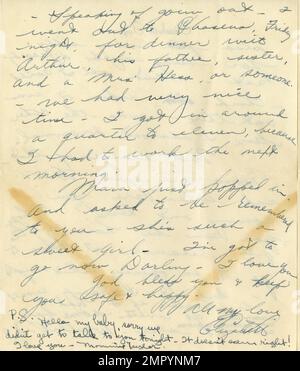 - Speaking of going out - I
went out to Chasens, Friday
night, for dinner with
Arthur, his father, sister,
and a Mrs. Hess, or someone.
- we had very nice
time - I got in around
a quarter to eleven, because
I had to work the next
morning.
just popped in
and asked to be remembered
to you - she's such a
sweet girl - I've got to
go now Darling - I love you
God bless you & keep
you safe & happy.
All my love
Elizabeth
P.S. Hello my baby, sorry we
didn't get to talk to you tonight. It doesn't seem right!
I love you -
alamy
Image ID: 2MPYNM7
www.alamy.com